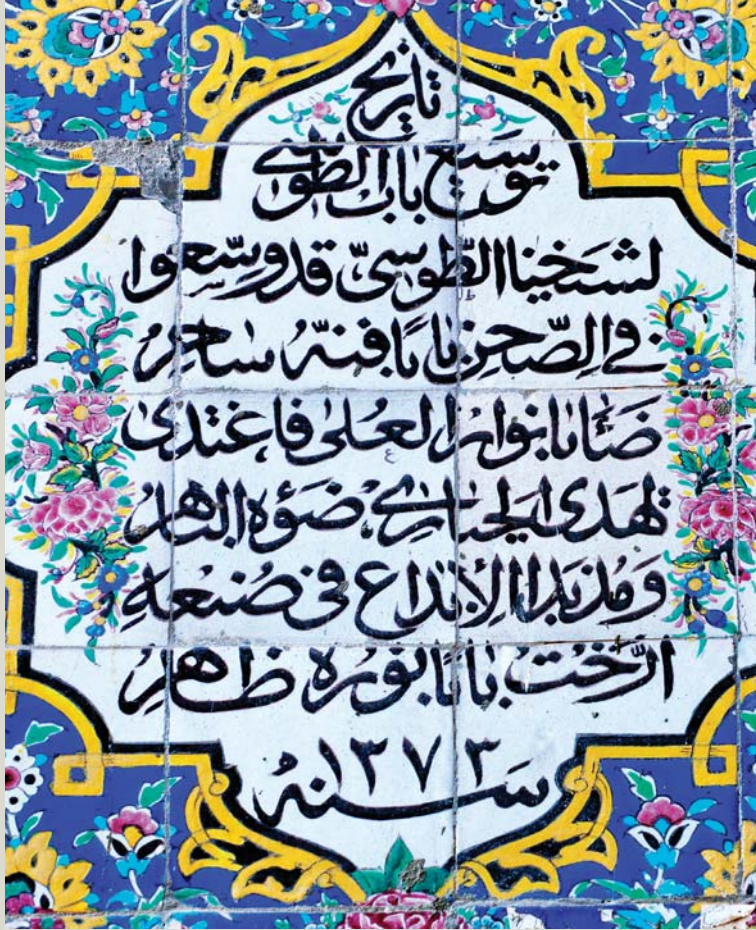 تاريخ
توسيع باب الطوسي
لشيخنا الطّوسيّ قد وسّعوا
في الصّحن بابًا فنّهُ ساحرُ
ضَاءَ بانوار العُلى فاغتدى
تهدى الحيارى ضَوْءُه الباهرُ
وَمُذ بَدا الإبداع في صُنعه
ارّختُ بابًا نورهُ ظاهرُ
سنهُ ١٣٧٣